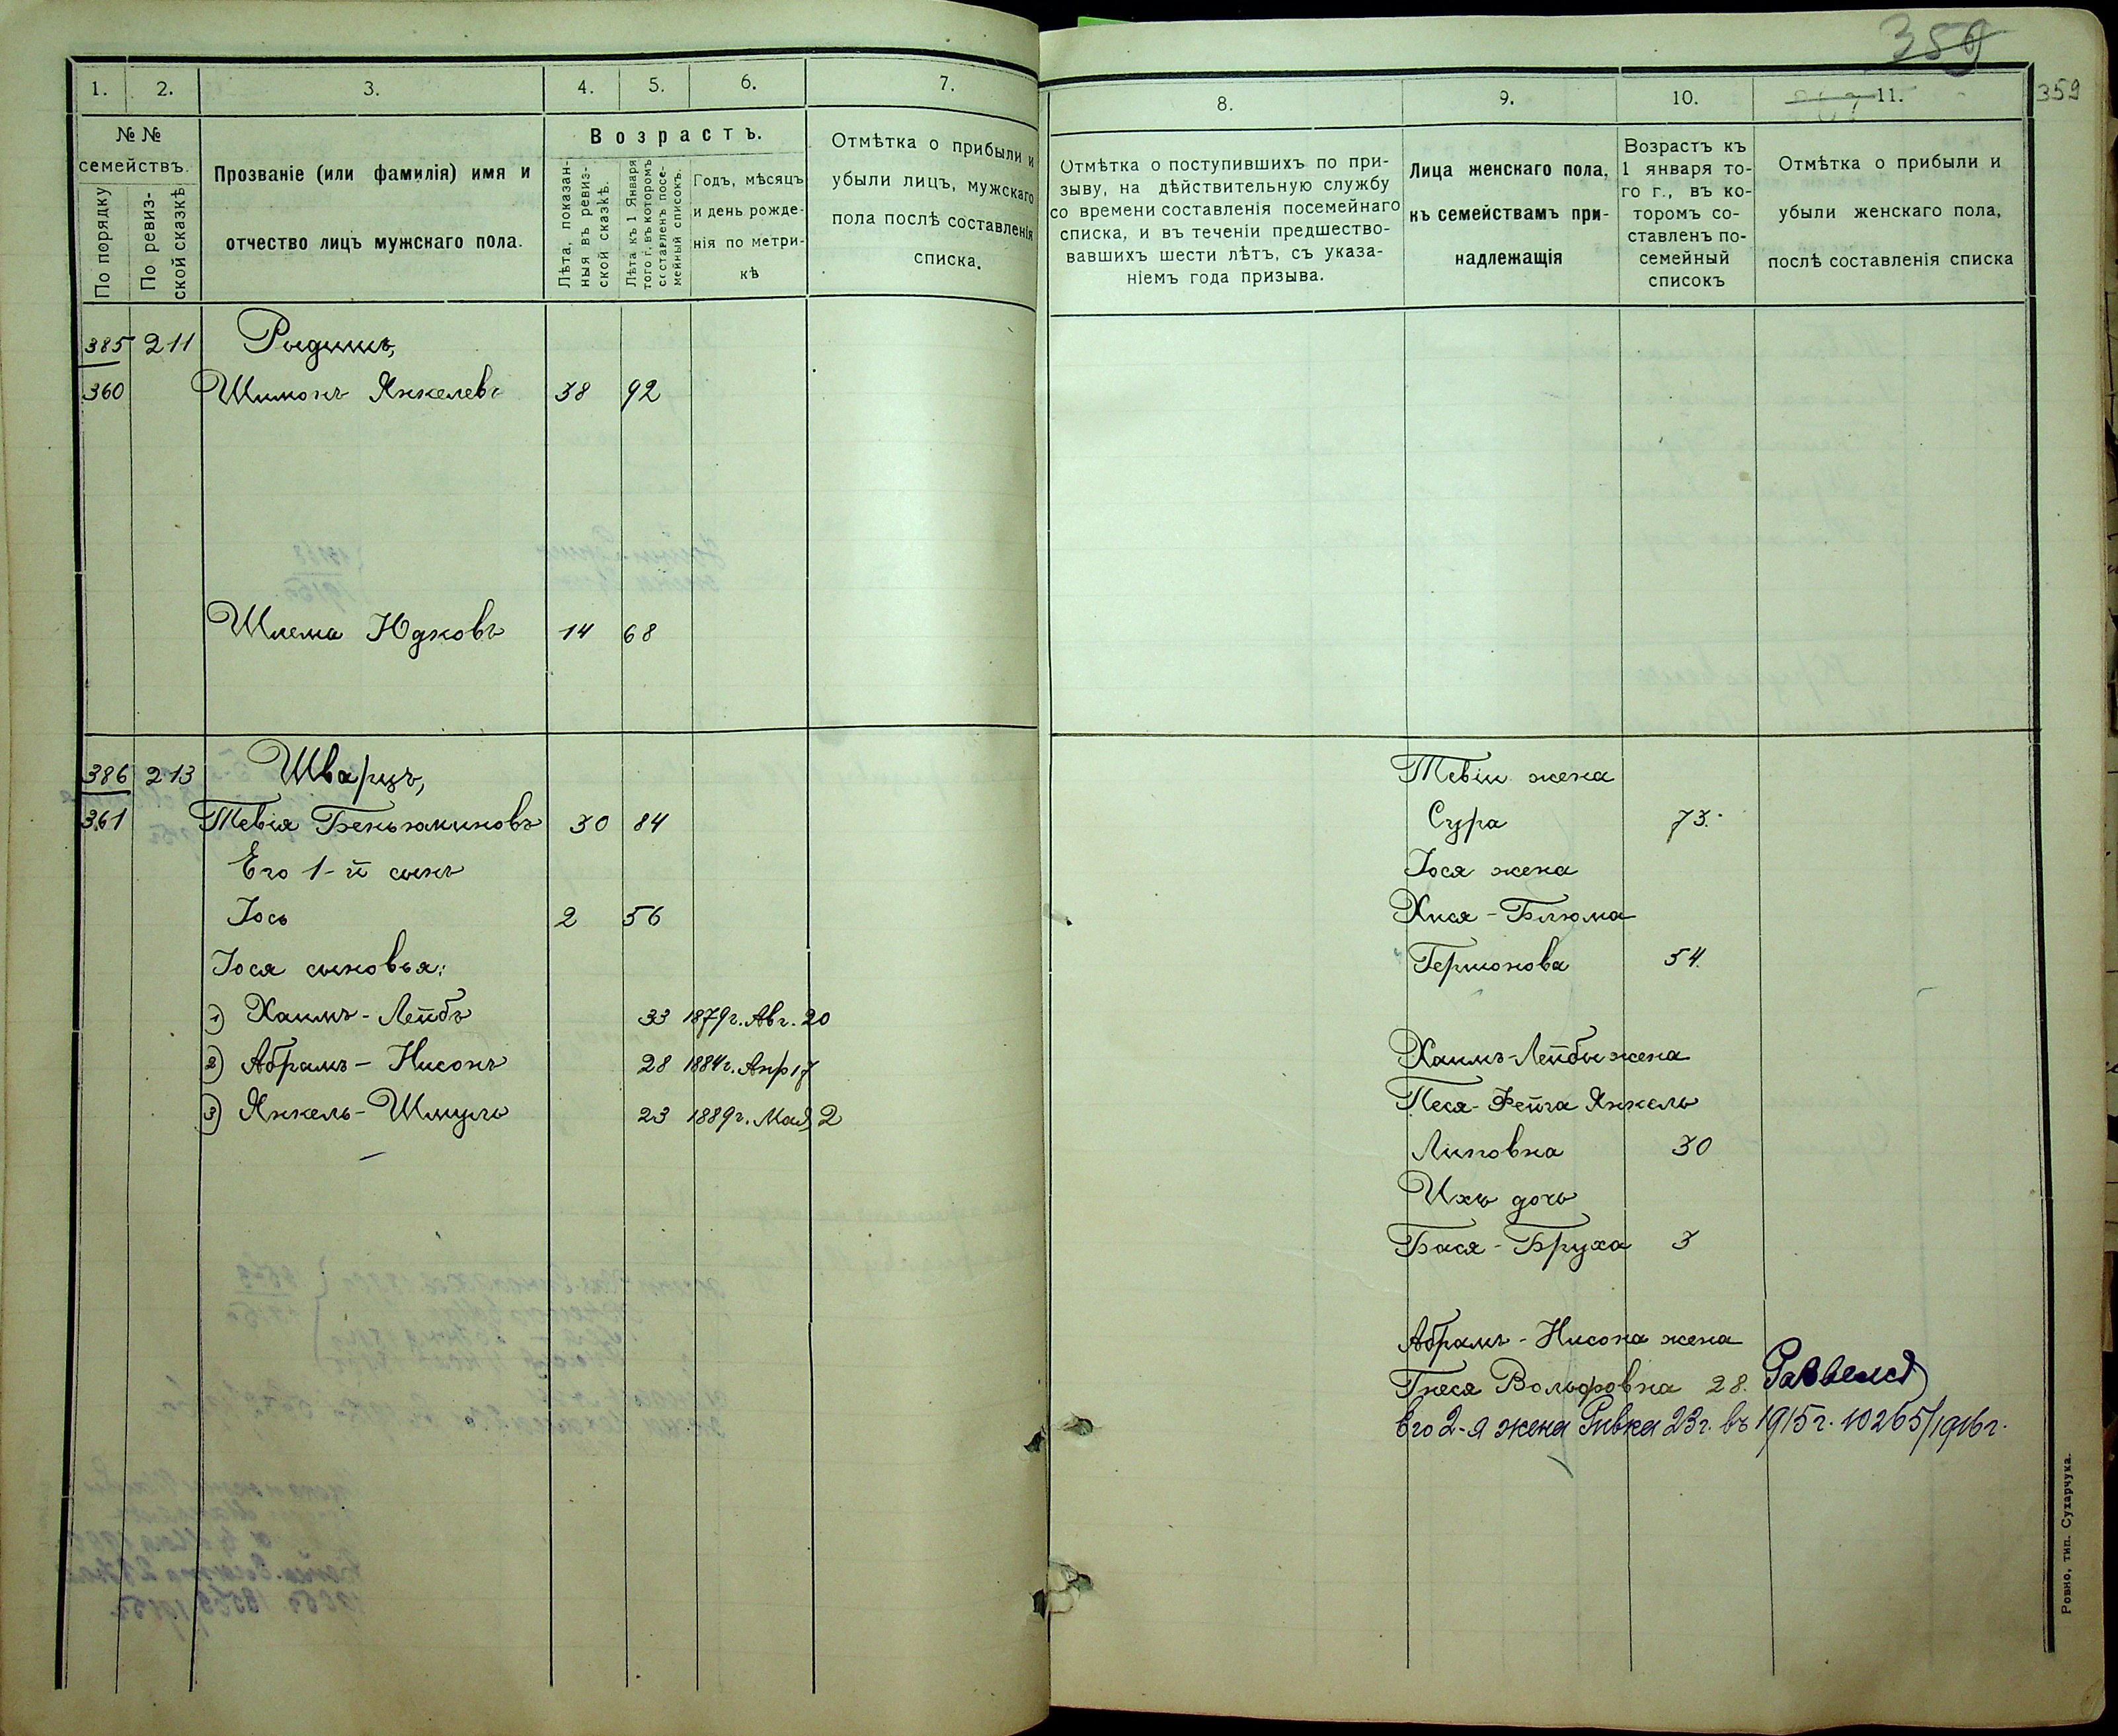 359
359
1. 2. 3. 4. 5. 6. 7.
№ №
семействъ.
По порядку
По ревиз-
ской сказкѣ
Прозваніе (или фамилія) имя и
отчество лицъ мужскаго пола.
Возрастъ.
Лѣта, показан-
ныя въ ревиз-
ской сказкѣ.
Лѣта къ 1 Января
того г. въ которомъ
составленъ посе-
мейный списокъ.
Годъ, мѣсяцъ
и день рожде-
нія по метри-
кѣ
Отмѣтка о прибыли и
убыли лицъ, мужскаго
пола послѣ составленія
списка.
385 211
360 Шимонъ Янкелевъ 38 92
Шлема Юдковъ 14 68
386 213 Шварцъ,
361 Тевія Беньяминовъ 30 84
Его 1-й сынъ
Іось 2 56
Іося сыновья:
1) Хаимъ-Лейбъ 33 1879г. Авг. 20
2) Абрамъ-Нисонъ 28 1884г. Апр 17
3) Янкель-Шмуль 23 1889г. Мая 2
8. 9. 10. 11.
Отмѣтка о поступившихъ по при-
зыву, на дѣйствительную службу
со времени составленія посемейнаго
списка, и въ теченіи предшество-
вавшихъ шести лѣтъ, съ указа-
ніемъ года призыва.
Лица женскаго пола,
къ семействамъ при-
надлежащія
Возрастъ къ
1 января то-
го г., въ ко-
торомъ со-
ставленъ по-
семейный
списокъ
Отмѣтка о прибыли и
убыли женскаго пола,
послѣ составленія списка
Тевіи жена
Сура 73.
Іося жена
Хися-Блюма
Гершонова 54.
Хаимъ-Лейбы жена
Песя-Фейга Янкель
Липовна 30
Ихъ дочь
Бася-Бруха 3
Абрамъ-Нисона жена
Гнеся Вольфовна 28.
Его 2-я жена Ривка 23г. въ 1915г. 10265/1916г.
Ровно, тип. Сухарчука.